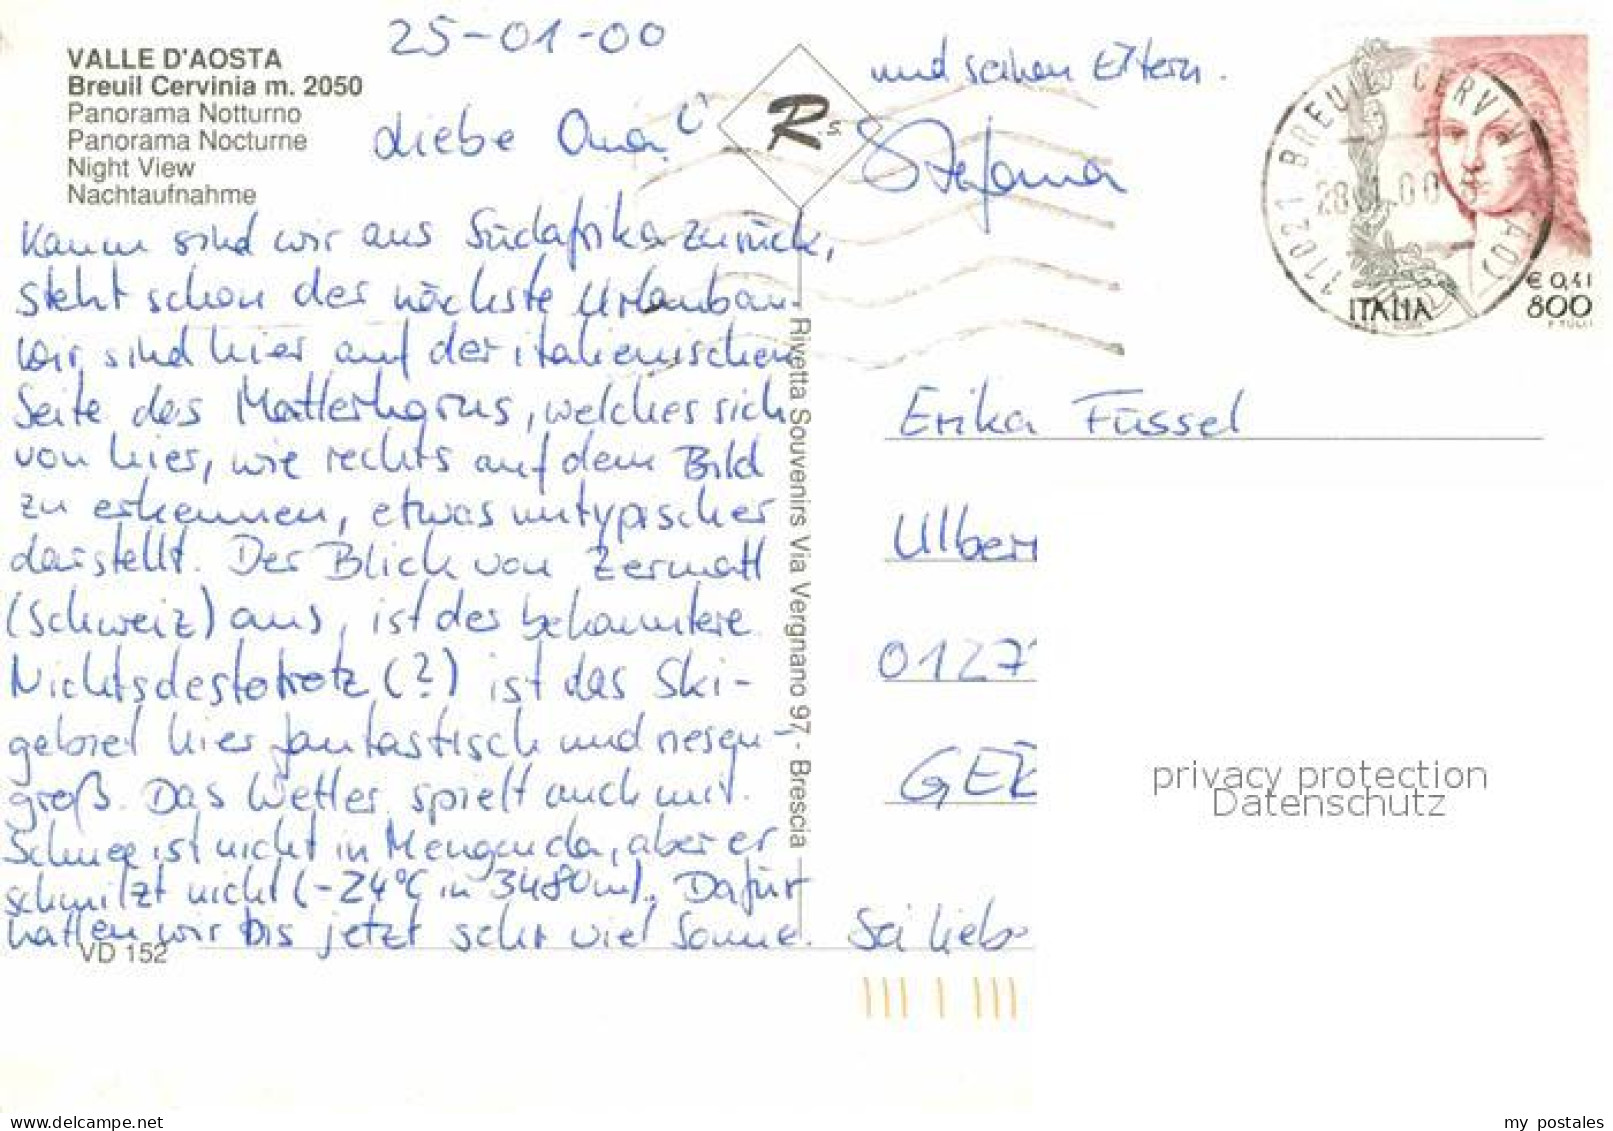 VALLE D'AOSTA
Breuil Cervinia m. 2050
Panorama Notturno
Panorama Nocturne
Night View
Nachtaufnahme
25-01-00
Liebe Oma!
Kaum sind wir aus Südafrika zurück,
steht schon der nächste Urlauban.
Wir sind hier auf der italienischen
Seite des Matterhorns, welches sich
von hier, wie rechts auf dem Bild
zu erkennen, etwas untypischer
darstellt. Der Blick von Zermatt
(Schweiz) aus, ist der bekanntere.
Nichtsdestotrotz (?) ist das Ski-
gebiet hier fantastisch und riesen-
groß. Das Wetter spielt auch mit.
Schnee ist nicht in Mengen da, aber er
schmilzt nicht (-24°C in 3480m). Dafür
hatten wir bis jetzt sehr viel Sonne.
VD 152
Rs.
Rivetta Souvenirs Via Vergnano 97 - Brescia
und seinen Eltern.
Stefana
11021 BREUIL CERVINIA (AO)
28.1.00
ITALIA
€ 0,41
800
Erika Füssel
Ulbern
0127
GE
Sei lieb
privacy protection
Datenschutz
my postales